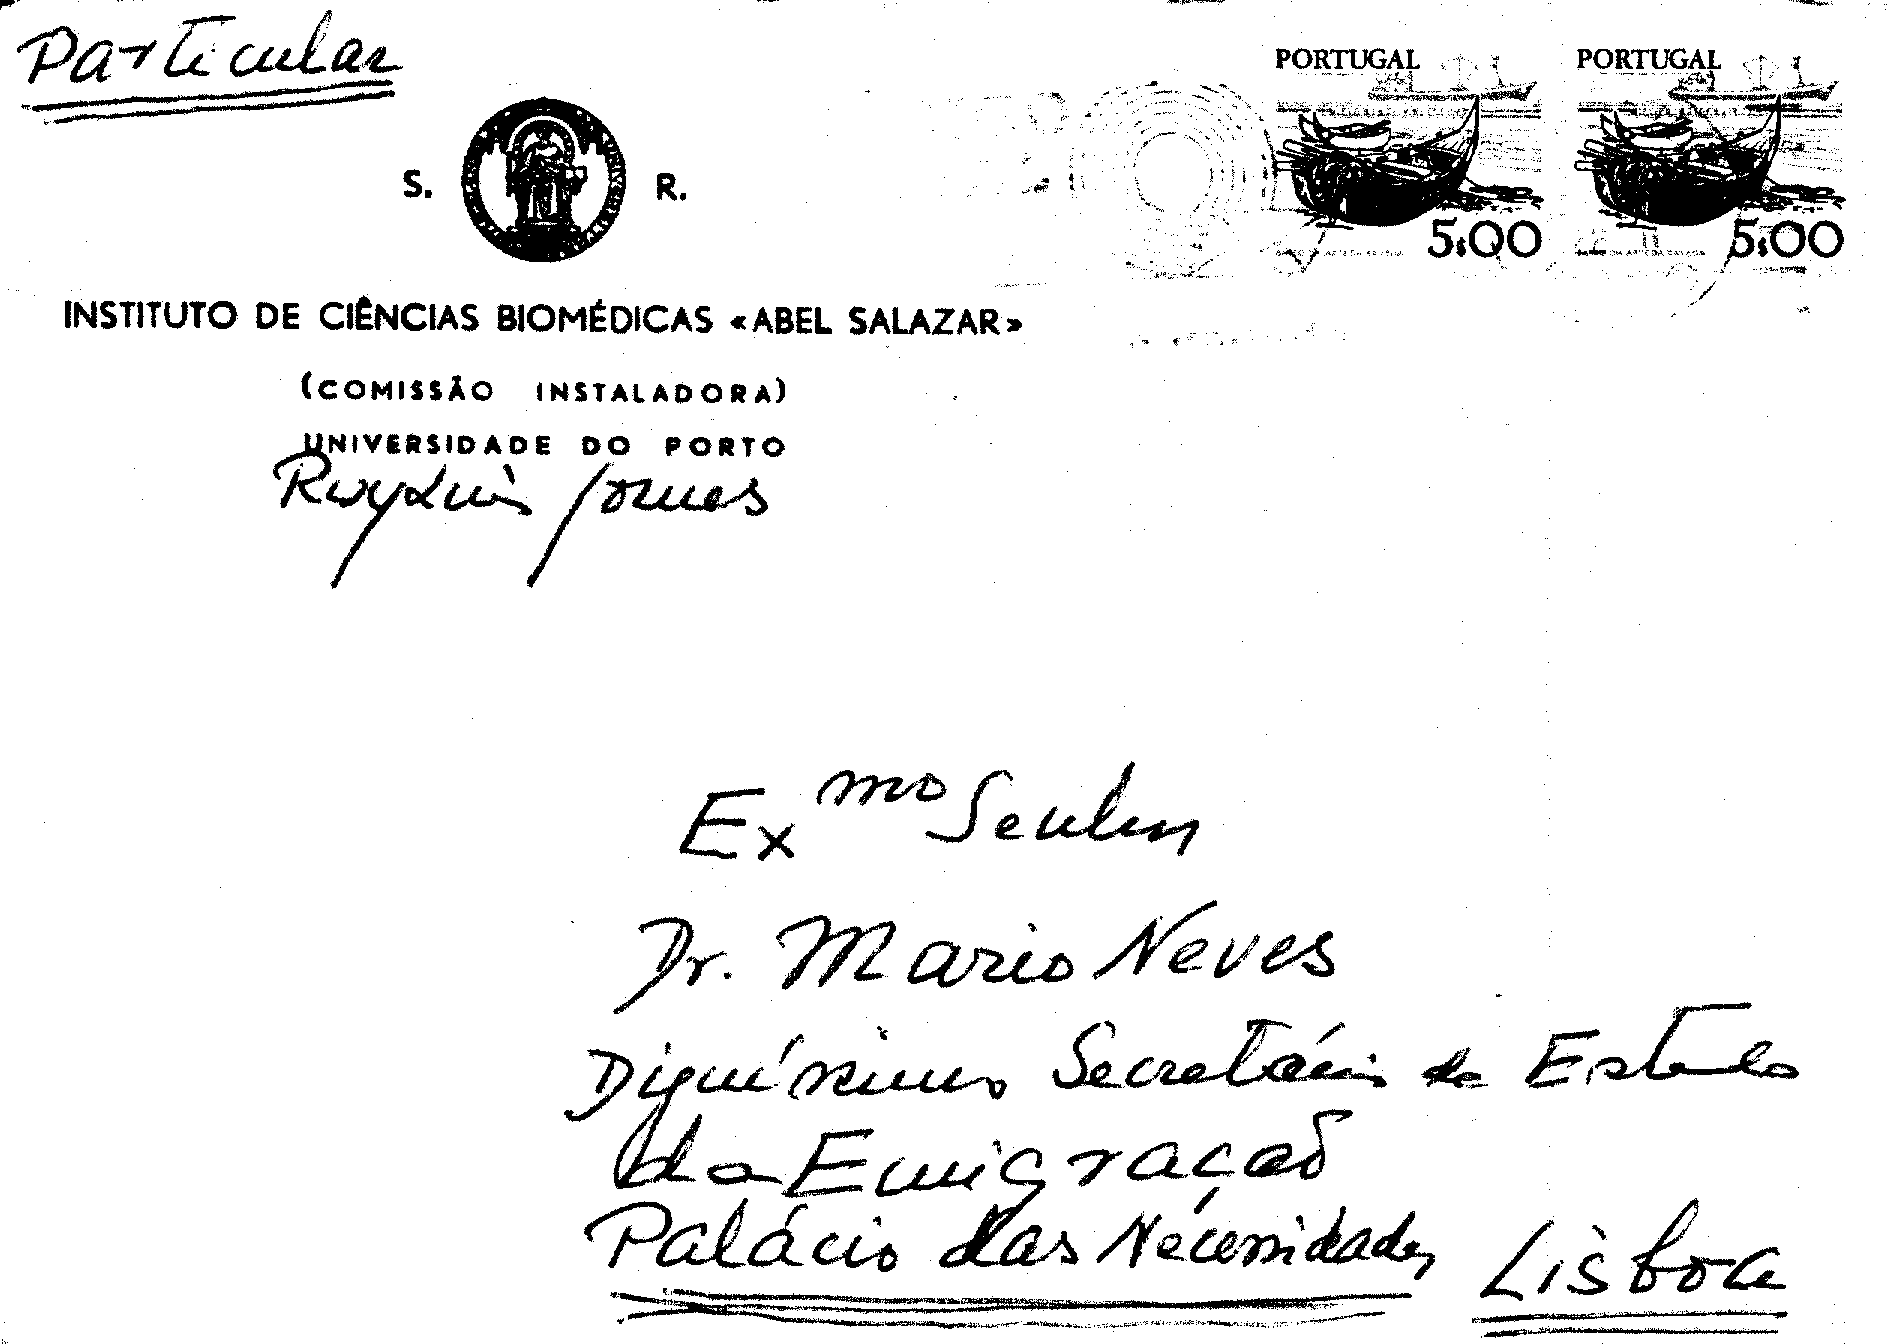 Particular
PORTUGAL PORTUGAL
5$00 5$00
S. R.
INSTITUTO DE CIÊNCIAS BIOMÉDICAS «ABEL SALAZAR»
(COMISSÃO INSTALADORA)
UNIVERSIDADE DO PORTO
Ruy Luís Gomes
Exmo Senhor
Dr. Mario Neves
Digníssimo Secretário de Estado
da Emigração
Palácio das Necessidades Lisboa